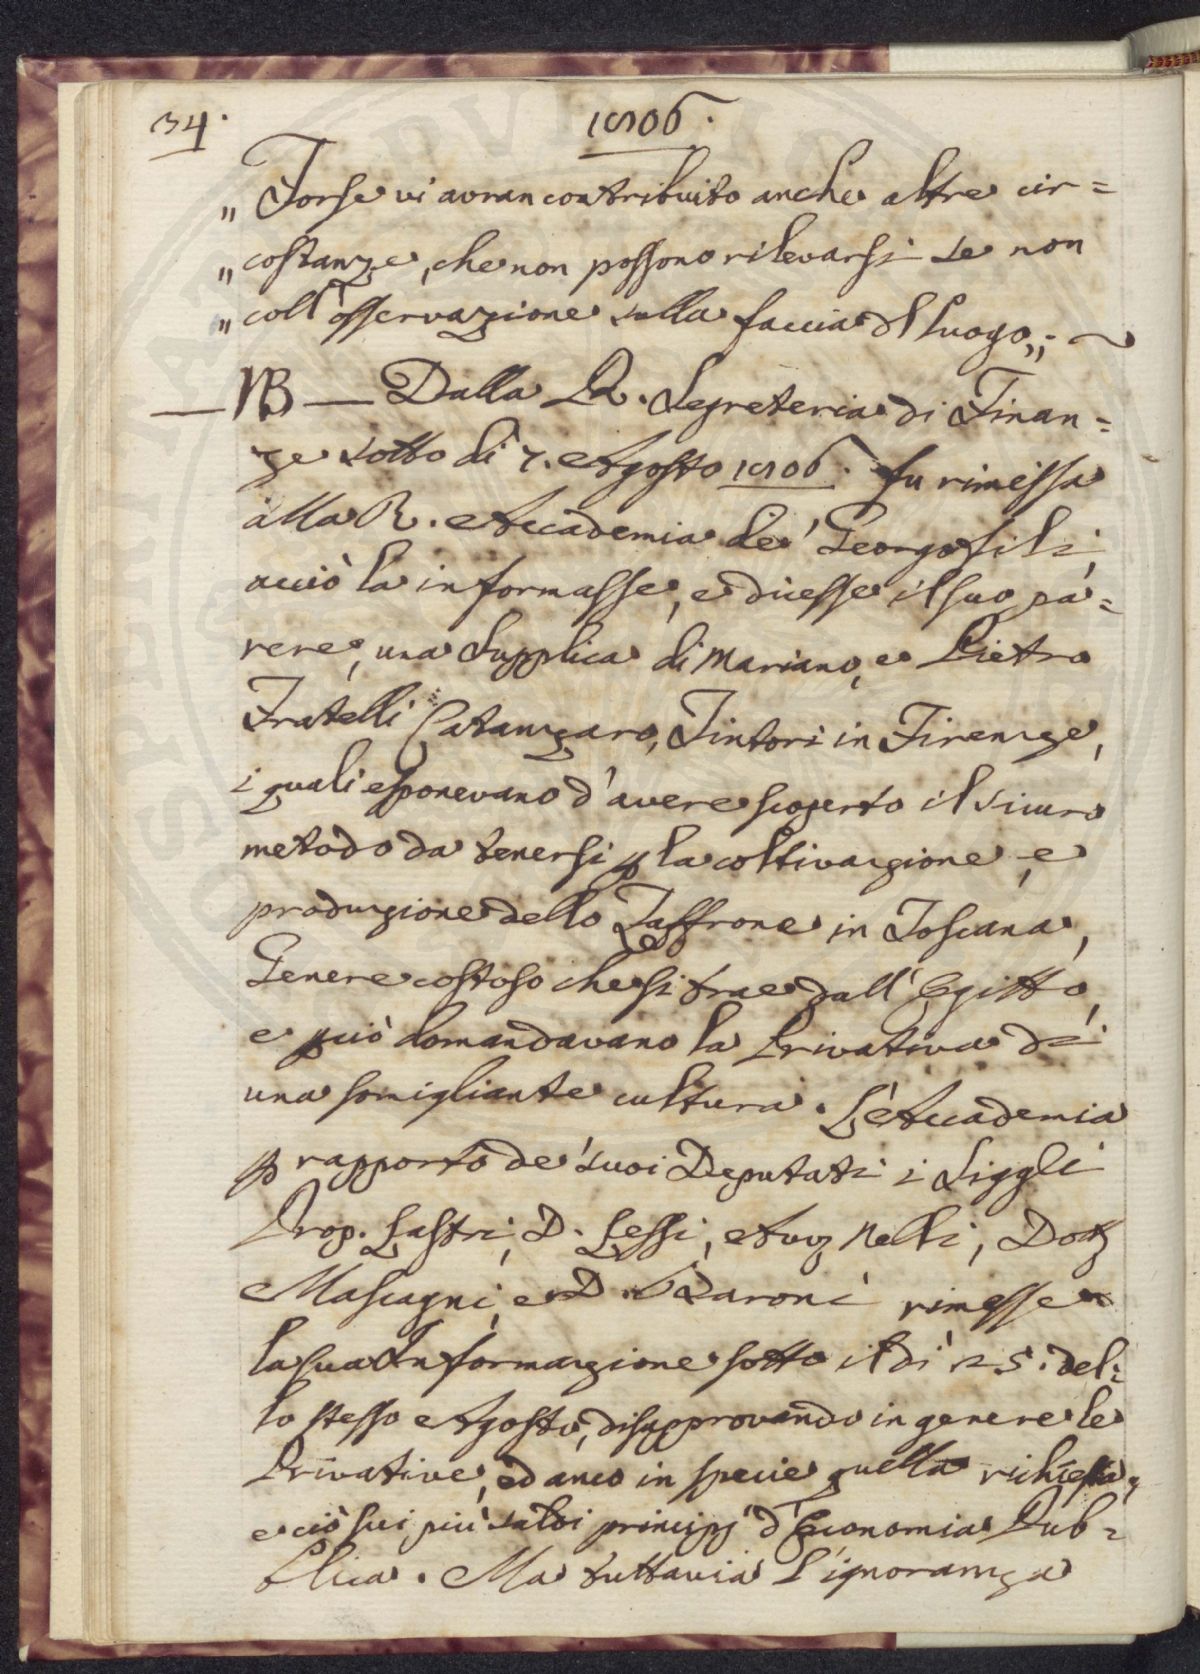 34.
1806.
„ Forse vi avran contribuito anche altre cir=
„ costanze, che non possono rilevarsi se non
„ coll'osservazione sulla faccia del luogo„; ~
— NB — Dalla R. Segreteria di Finan=
ze sotto dì 7. Agosto 1806. fu rimessa
alla R. Accademia de' Georgofili,
acciò la informasse, e dicesse il suo pa=
rere, una Supplica di Mariano, e Pietro
Fratelli Catanzaro, Tintori in Firenze,
i quali esponevano d'avere scoperto il sicuro
metodo da tenersi p la coltivazione, e
produzione dello Zaffrone in Toscana,
Genere costoso che si trae dall'Egitto,
e pciò domandavano la Privativa di
una somigliante cultura. L'Accademia
p rapporto de' suoi Deputati i Siggli
Prop. Lastri, D. Lessi, Avv Nelli, Dott
Mascagni, e D. Baroni rimesse
la sua Informazione sotto il dì 25. del=
lo stesso Agosto, disapprovando in genere le
Privative, ed anco in specie quella richiesta,
e ciò sui più saldi principj d'Economia Pub=
blica. Ma tuttavia l'ignoranza